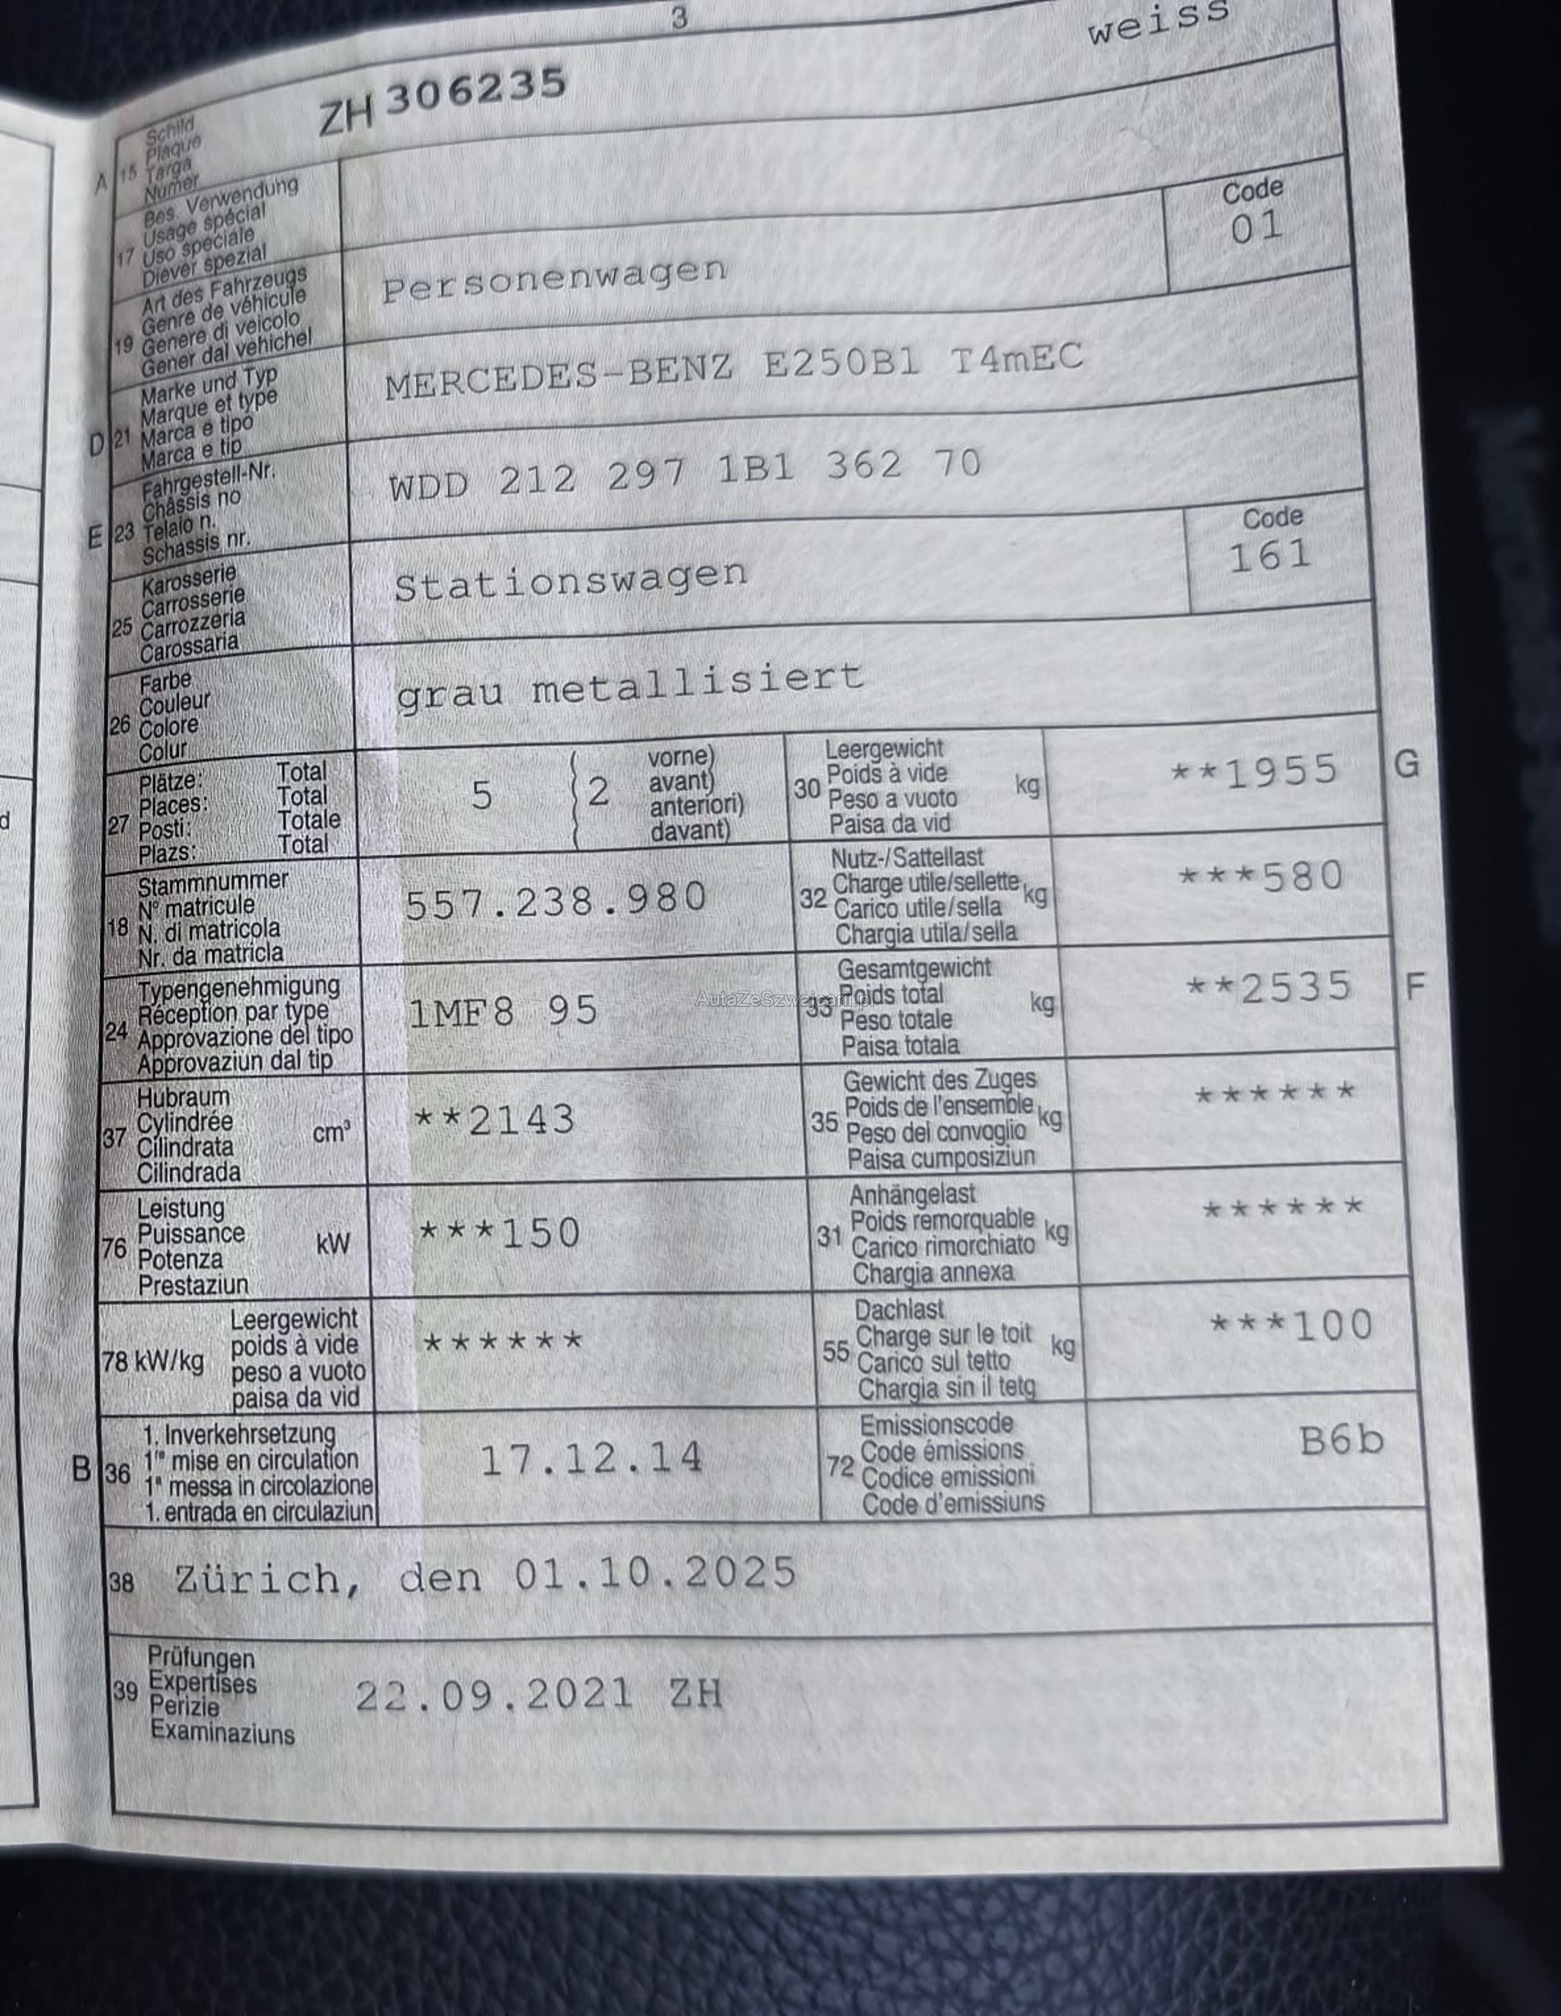 3
weiss
A 15 Schild
Plaque
Targa
Numer
ZH 306235
17 Bes. Verwendung
Usage spécial
Uso speciale
Diever spezial
19 Art des Fahrzeugs
Genre de véhicule
Genere di veicolo
Gener dal vehichel
Personenwagen
Code
01
D 21 Marke und Typ
Marque et type
Marca e tipo
Marca e tip
MERCEDES-BENZ E250B1 T4mEC
E 23 Fahrgestell-Nr.
Châssis no
Telaio n.
Schassis nr.
WDD 212 297 1B1 362 70
25 Karosserie
Carrosserie
Carrozzeria
Carossaria
Stationswagen
Code
161
26 Farbe
Couleur
Colore
Colur
grau metallisiert
27 Plätze: Total
Places: Total
Posti: Totale
Plazs: Total
5 { 2
vorne)
avant)
anteriori)
davant)
30 Leergewicht
Poids à vide
Peso a vuoto
Paisa da vid
kg
**1955 G
18 Stammnummer
N° matricule
N. di matricola
Nr. da matricla
557.238.980
32 Nutz-/Sattellast
Charge utile/sellette
Carico utile/sella
Chargia utila/sella
kg
***580
24 Typengenehmigung
Réception par type
Approvazione del tipo
Approvaziun dal tip
1MF8 95
AutaZeSzwajcarii.pl
33 Gesamtgewicht
Poids total
Peso totale
Paisa totala
kg
**2535 F
37 Hubraum
Cylindrée
Cilindrata
Cilindrada
cm³
**2143
35 Gewicht des Zuges
Poids de l'ensemble
Peso del convoglio
Paisa cumposiziun
kg
******
76 Leistung
Puissance
Potenza
Prestaziun
kW
***150
31 Anhängelast
Poids remorquable
Carico rimorchiato
Chargia annexa
kg
******
78 kW/kg
Leergewicht
poids à vide
peso a vuoto
paisa da vid
******
55 Dachlast
Charge sur le toit
Carico sul tetto
Chargia sin il tetg
kg
***100
B 36 1. Inverkehrsetzung
1re mise en circulation
1ª messa in circolazione
1. entrada en circulaziun
17.12.14
72 Emissionscode
Code émissions
Codice emissioni
Code d'emissiuns
B6b
38 Zürich, den 01.10.2025
39 Prüfungen
Expertises
Perizie
Examinaziuns
22.09.2021 ZH
d